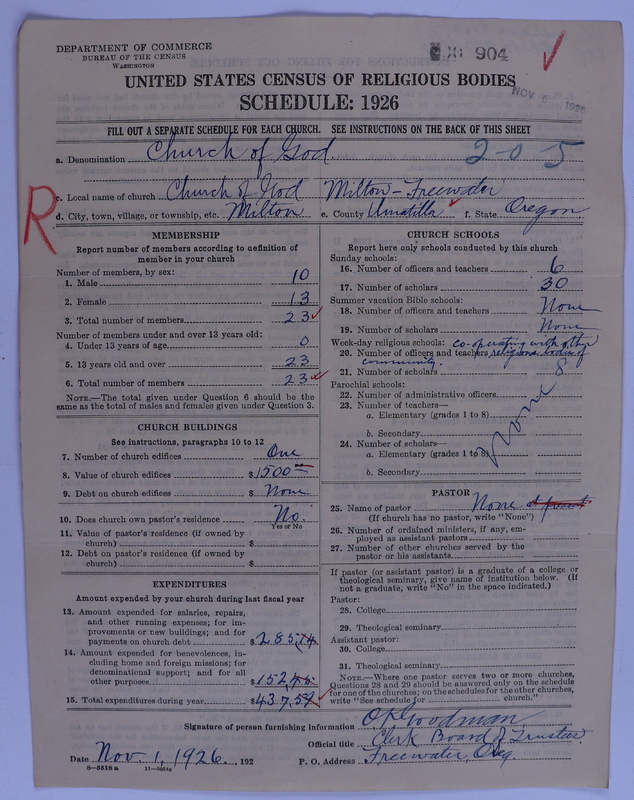 DEPARTMENT OF COMMERCE
BUREAU OF THE CENSUS
WASHINGTON
904
UNITED STATES CENSUS OF RELIGIOUS BODIES
SCHEDULE: 1926
NOV 1926
FILL OUT A SEPARATE SCHEDULE FOR EACH CHURCH. SEE INSTRUCTIONS ON THE BACK OF THIS SHEET
a. Denomination Church of God. 205
c. Local name of church Church of God Milton-Freewater
R
d. City, town, village, or township, etc. Milton e. County Umatilla f. State Oregon
MEMBERSHIP
Report number of members according to definition of
member in your church
Number of members, by sex:
1. Male 10
2. Female 13
3. Total number of members 23
Number of members under and over 13 years old:
4. Under 13 years of age 0
5. 13 years old and over 23
6. Total number of members 23
NOTE.—The total given under Question 6 should be
same as the total of males and females given under Question 3.
CHURCH BUILDINGS
See instructions, paragraphs 10 to 12
7. Number of church edifices One
8. Value of church edifices $1500
9. Debt on church edifices $ None
10. Does church own pastor's residence No.
Yes or No
11. Value of pastor's residence (if owned by
church) $
12. Debt on pastor's residence (if owned by
church) $
EXPENDITURES
Amount expended by your church during last fiscal year
13. Amount expended for salaries, repairs,
and other running expenses; for im-
provements or new buildings; and for
payments on church debt $285.14
14. Amount expended for benevolences, in-
cluding home and foreign missions; for
denominational support; and for all
other purposes $152.45
15. Total expenditures during year $437.59
CHURCH SCHOOLS
Report here only schools conducted by this church
Sunday schools:
16. Number of officers and teachers 6
17. Number of scholars 30
Summer vacation Bible schools:
18. Number of officers and teachers None
19. Number of scholars None
Week-day religious schools: co-operating with other
20. Number of officers and teachers religious bodies of
community.
21. Number of scholars 8
Parochial schools:
22. Number of administrative officers
23. Number of teachers—
a. Elementary (grades 1 to 8)
b. Secondary
None
24. Number of scholars—
a. Elementary (grades 1 to 8)
b. Secondary
PASTOR
25. Name of pastor None at present
(If church has no pastor, write "None")
26. Number of ordained ministers, if any, em-
ployed as assistant pastors
27. Number of other churches served by the
pastor or his assistants
If pastor (or assistant pastor) is a graduate of a college or
theological seminary, give name of institution below. (If
not a graduate, write "No" in the space indicated.)
Pastor:
28. College
29. Theological seminary
Assistant pastor:
30. College
31. Theological seminary
NOTE.—Where one pastor serves two or more churches,
Questions 28 and 29 should be answered only on the schedule
for one of the churches; on the schedules for the other churches,
write "See schedule for church."
Signature of person furnishing information O.K. Goodman
Official title Clerk Board of Trustees
Date Nov. 1, 1926. , 192 P. O. Address Freewater, Oreg.
8—5518 a